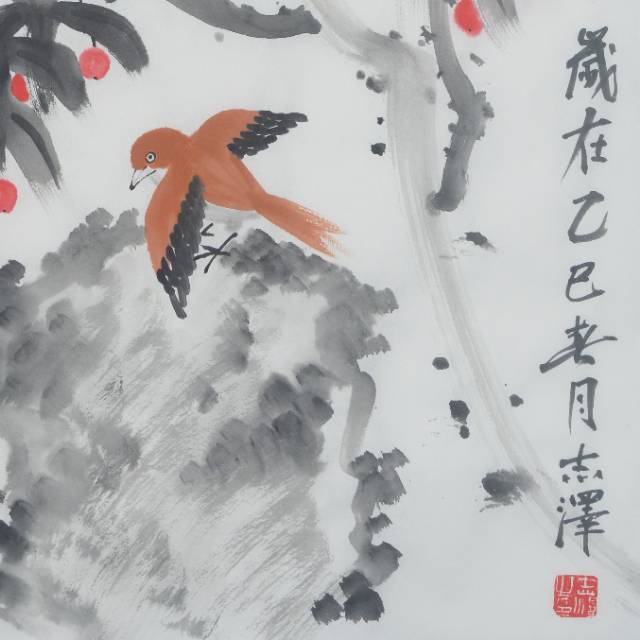 歲在乙巳春月志澤